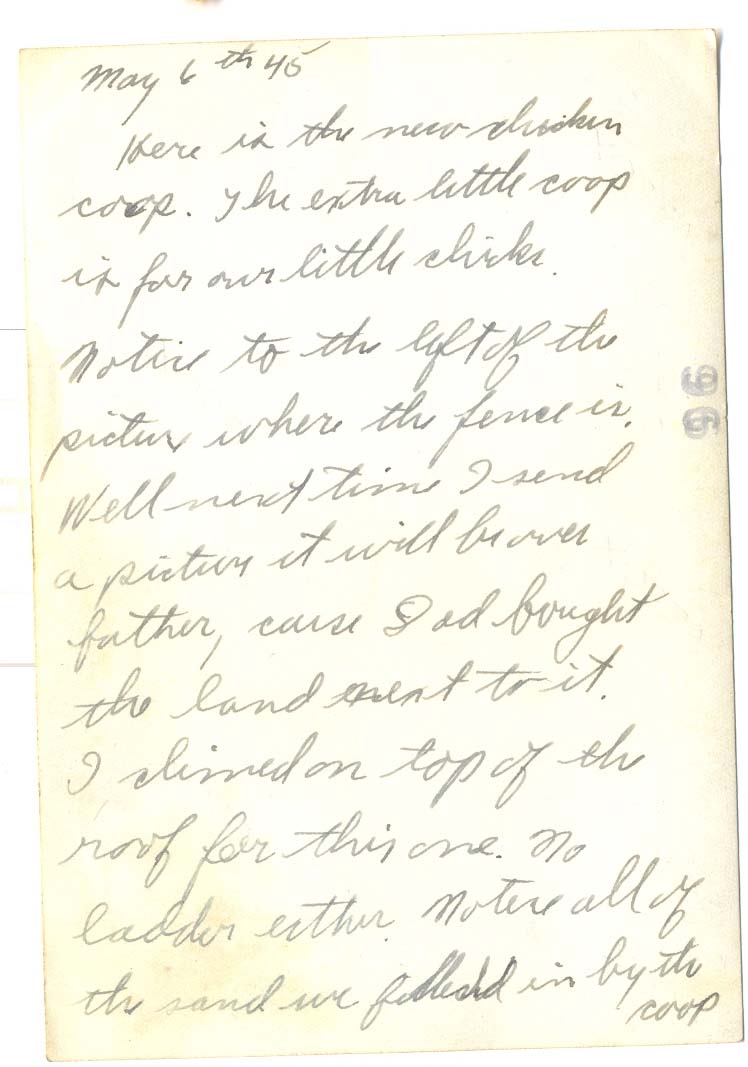 May 6th 45
Here is the new chicken
coop. The extra little coop
is for our little chicks.
Notice to the left of the
picture where the fence is.
Well next time I send
a picture it will be over
father, cause Dad bought
the land next to it.
I climed on top of the
roof for this one. No
ladder either. Notice all of
the sand we filled in by the
coop
96